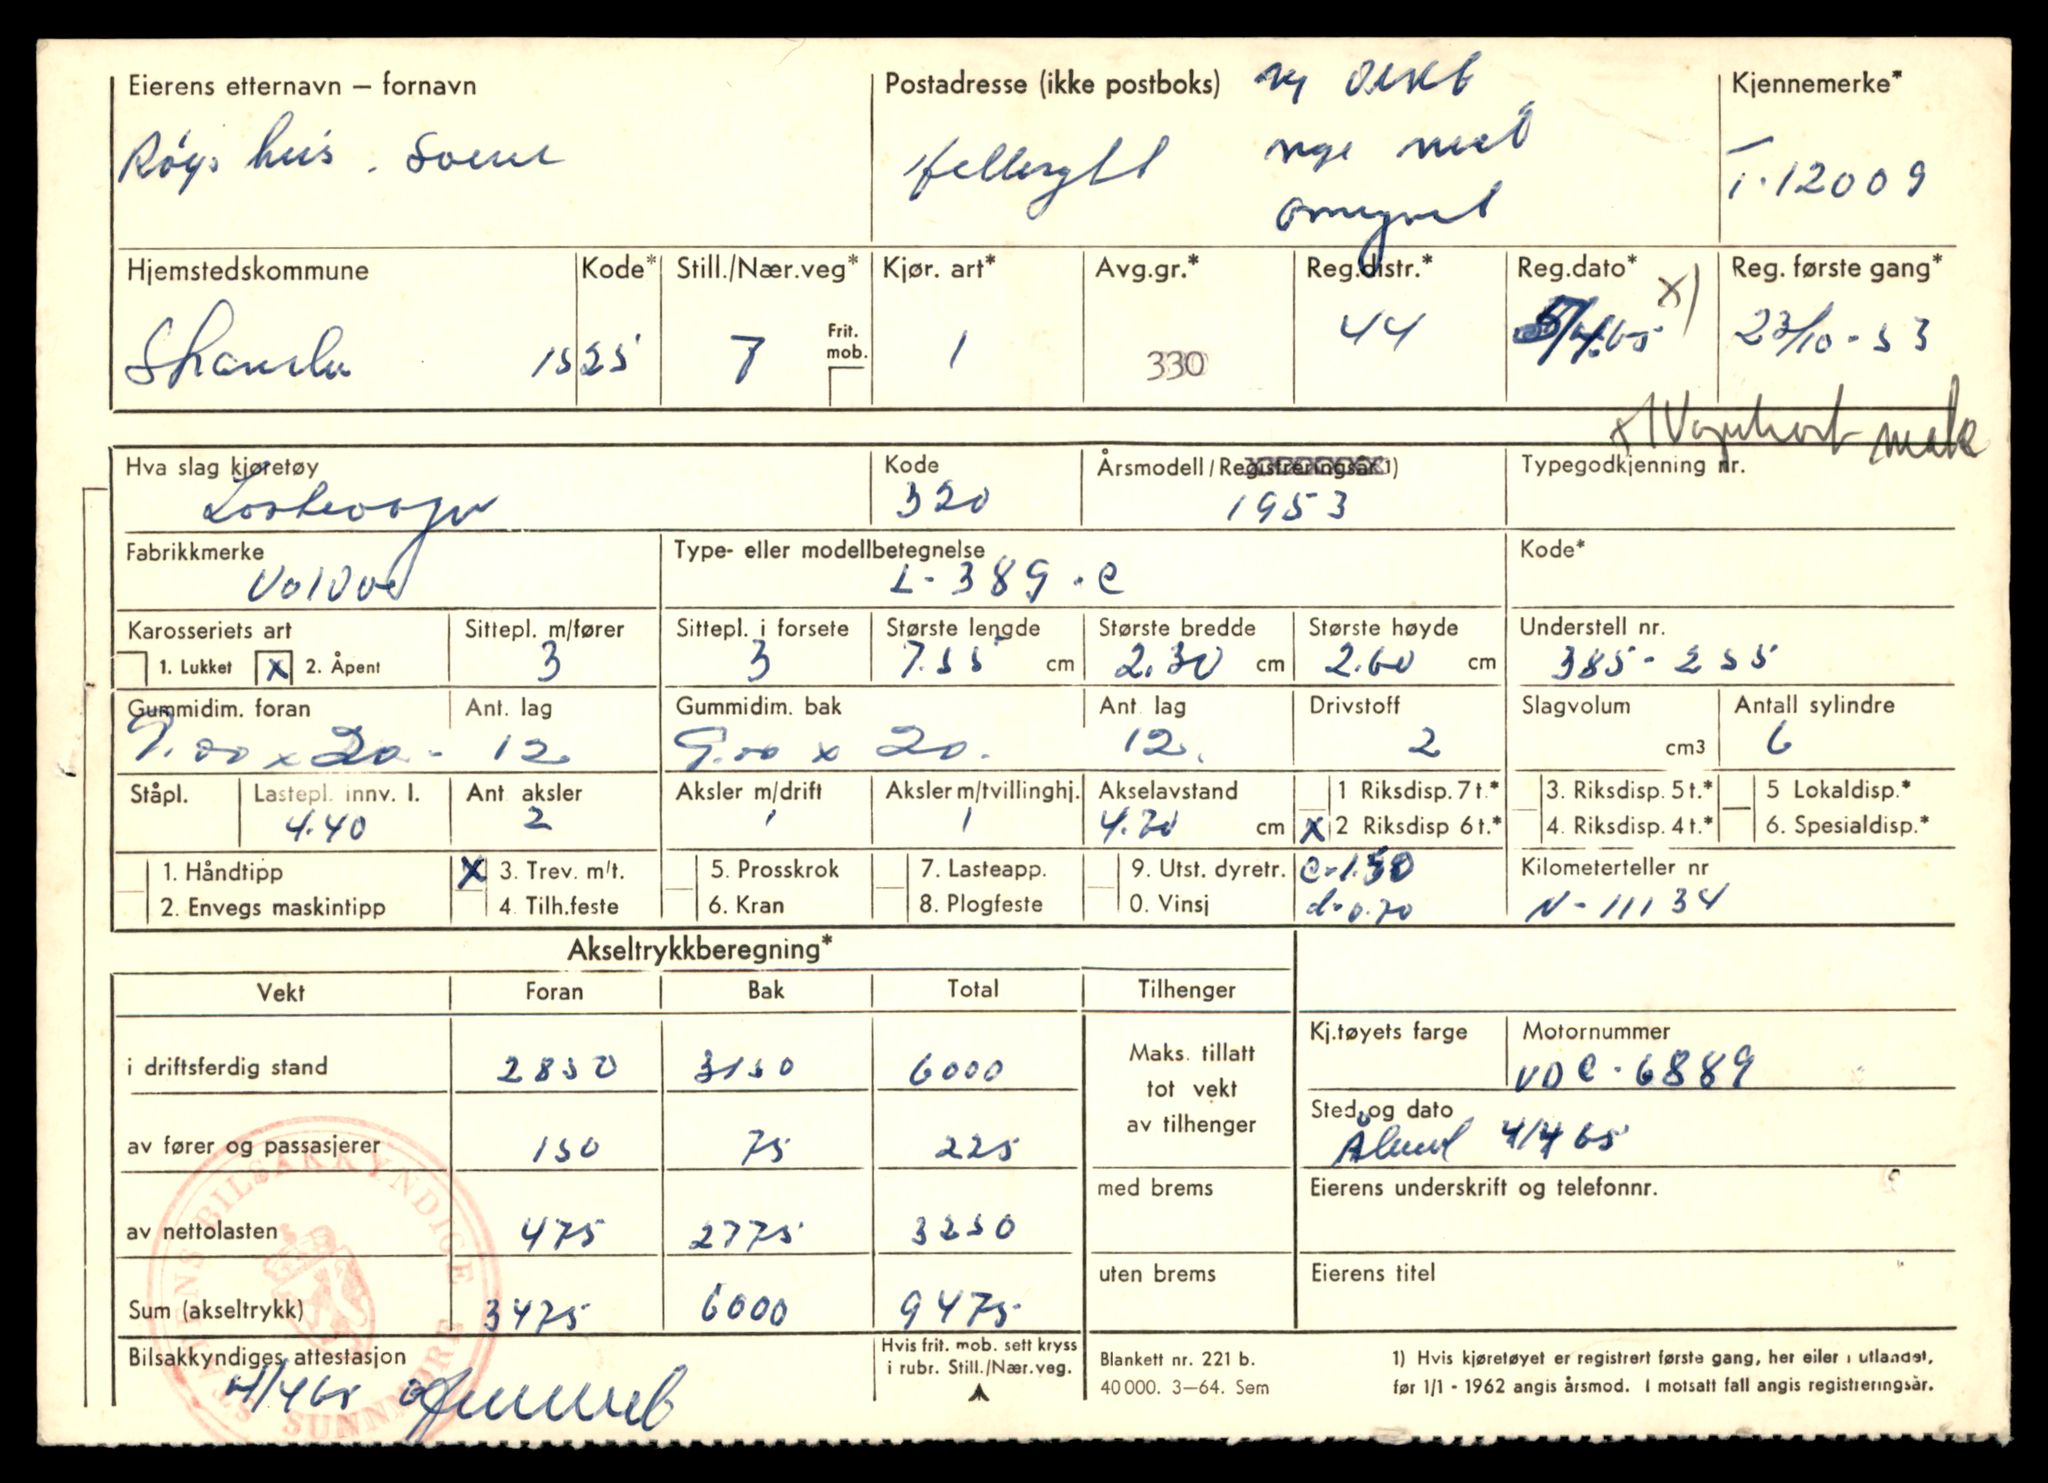 Eierens etternavn – fornavn
Postadresse (ikke postboks)
Kjennemerke*
Røyshus. Sverre
Hellesylt
nye
T-12009
Hjemstedskommune
Kode*
Still./Nær.veg*
Kjør. art*
Avg.gr.*
Reg.distr.*
Reg.dato* x)
Reg. første gang*
Stranda
1525
7
Frit. mob.
1
330
44
5/4.65
23/10-53
x) Vognkort
Hva slag kjøretøy
Kode
Årsmodell / Registreringsår 1)
Typegodkjenning nr.
Lastevogn
320
1953
Fabrikkmerke
Type- eller modellbetegnelse
Kode*
Volvo
L-389-C
Karosseriets art
Sittepl. m/fører
Sittepl. i forsete
Største lengde
Største bredde
Største høyde
Understell nr.
1. Lukket
x 2. Åpent
3
3
7.55 cm
2.30 cm
2.60 cm
385-255
Gummidim. foran
Ant. lag
Gummidim. bak
Ant. lag
Drivstoff
Slagvolum
Antall sylindre
9.00 x 20.
12
9.00 x 20.
12.
2
cm3
6
Ståpl.
Lastepl. innv. l.
Ant. aksler
Aksler m/drift
Aksler m/tvillinghj.
Akselavstand
1 Riksdisp. 7 t.*
3. Riksdisp. 5 t.*
5 Lokaldisp.*
4.40
2
1
1
4.20 cm
x 2 Riksdisp 6 t.*
4. Riksdisp. 4 t.*
6. Spesialdisp.*
1. Håndtipp
x 3. Trev. m/t.
5. Prosskrok
7. Lasteapp.
9. Utst. dyretr.
c-1.50
Kilometerteller nr
2. Envegs maskintipp
4. Tilh.feste
6. Kran
8. Plogfeste
0. Vinsj
d-0.70
N-11134
Akseltrykkberegning*
Vekt
Foran
Bak
Total
Tilhenger
i driftsferdig stand
2850
3150
6000
Maks. tillatt
tot vekt
av tilhenger
Kj.tøyets farge
Motornummer
VDC-6889
av fører og passasjerer
150
75
225
Sted og dato
Ålesund 4/4 65
av nettolasten
475
2775
3250
med brems
Eierens underskrift og telefonnr.
Sum (akseltrykk)
3475
6000
9475
uten brems
Eierens titel
Bilsakkyndiges attestasjon
4/4 65
Hvis frit. mob. sett kryss
i rubr. Still./Nær.veg.
Blankett nr. 221 b.
40 000. 3–64. Sem
1) Hvis kjøretøyet er registrert første gang, her eller i utlandet,
før 1/1 - 1962 angis årsmod. I motsatt fall angis registreringsår.
STATENS BILSAKKYNDIGE
SUNNMØRE